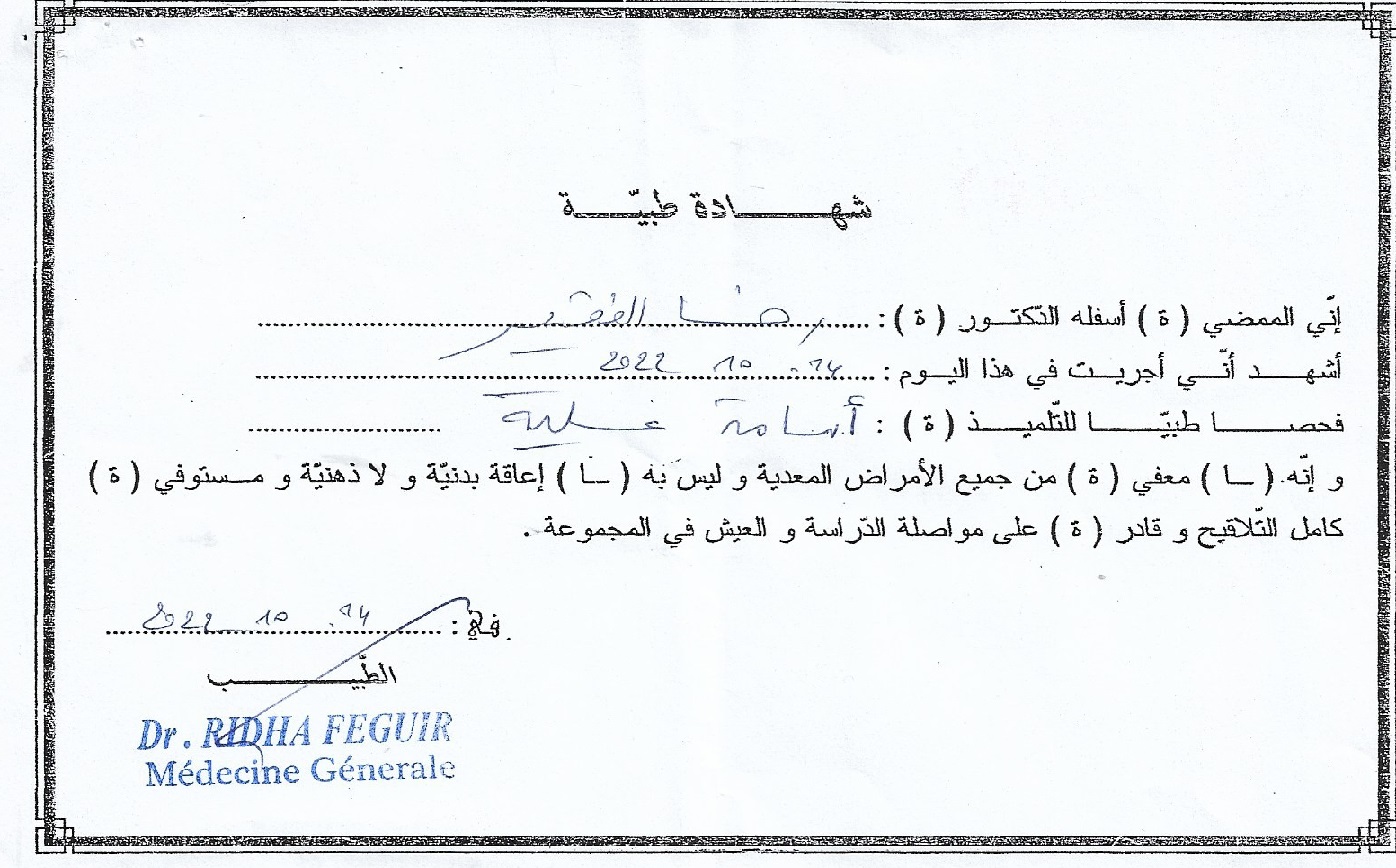 شهادة طبيّة
إنّي الممضي ( ة ) أسفله الدّكتور ( ة ) : رضا الفقير
أشهد أنّي أجريت في هذا اليوم : 14 10 2022
فحصا طبيّا للتّلميذ ( ة ) : أسامة
و إنّه ( ـا ) معفي ( ة ) من جميع الأمراض المعدية و ليس به ( ـا ) إعاقة بدنيّة و لا ذهنيّة و مستوفي ( ة )
كامل التّلاقيح و قادر ( ة ) على مواصلة الدّراسة و العيش في المجموعة .
في : 14 10 2022
الطّبيب
Dr. RIDHA FEGUIR
Médecine Génerale